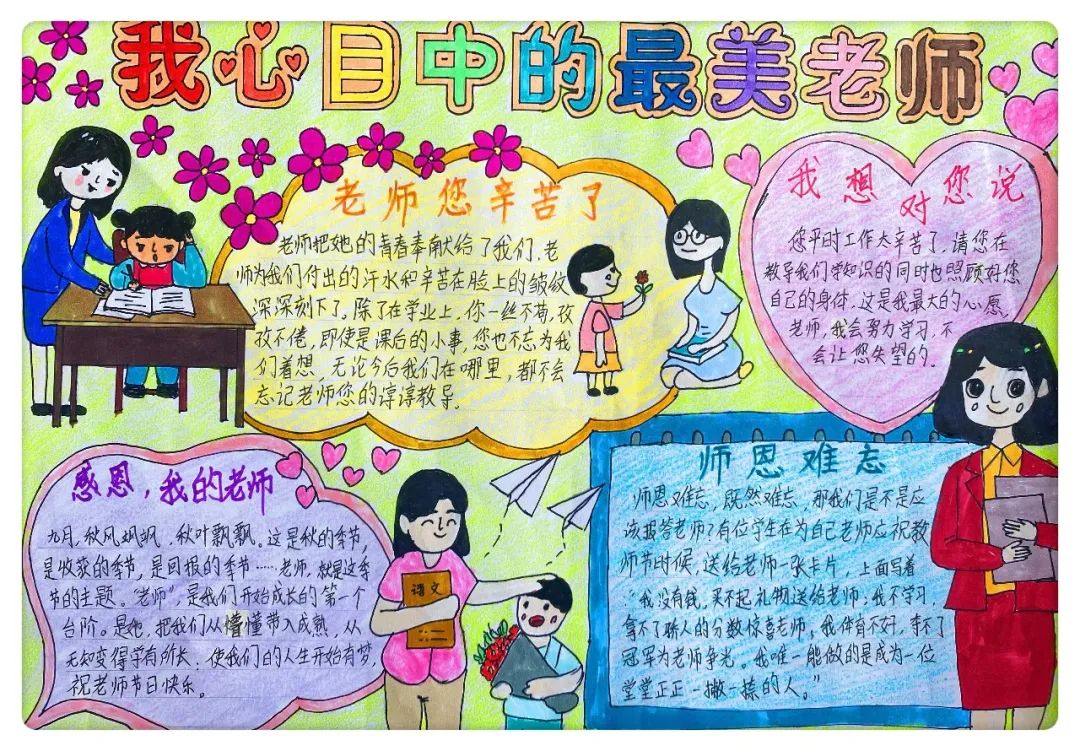 我心目中的最美老师
老师您辛苦了
老师把她的青春奉献给了我们.老
师为我们付出的汗水和辛苦在脸上的皱纹
深深刻下了,除了在学业上,你一丝不苟,孜
孜不倦,即使是课后的小事,您也不忘为我
们着想.无论今后我们在哪里,都不会
忘记老师您的谆谆教导.
我想对您说
您平时工作太辛苦了,请您在
教导我们学知识的同时也照顾好您
自己的身体.这是我最大的心愿,
老师,我会努力学习,不
会让您失望的.
感恩,我的老师
九月,秋风飒飒,秋叶飘飘。这是秋的季节,
是收获的季节,是回报的季节……老师,就是这季
节的主题。“老师”,是我们开始成长的第一个
台阶。是她,把我们从懵懂带入成熟,从
无知变得学有所长.使我们的人生开始有梦,
祝老师节日快乐。
语文
师恩难忘
师恩难忘,既然难忘,那我们是不是应
该报答老师?有位学生在为自己老师庆祝教
师节时候,送给老师一张卡片 上面写着
“我没有钱,买不起礼物送给老师;我不学习,
拿不了骄人的分数惊喜老师;我体育不好,夺不了
冠军为老师争光。我唯一能做的是成为一位
堂堂正正一撇一捺的人。”